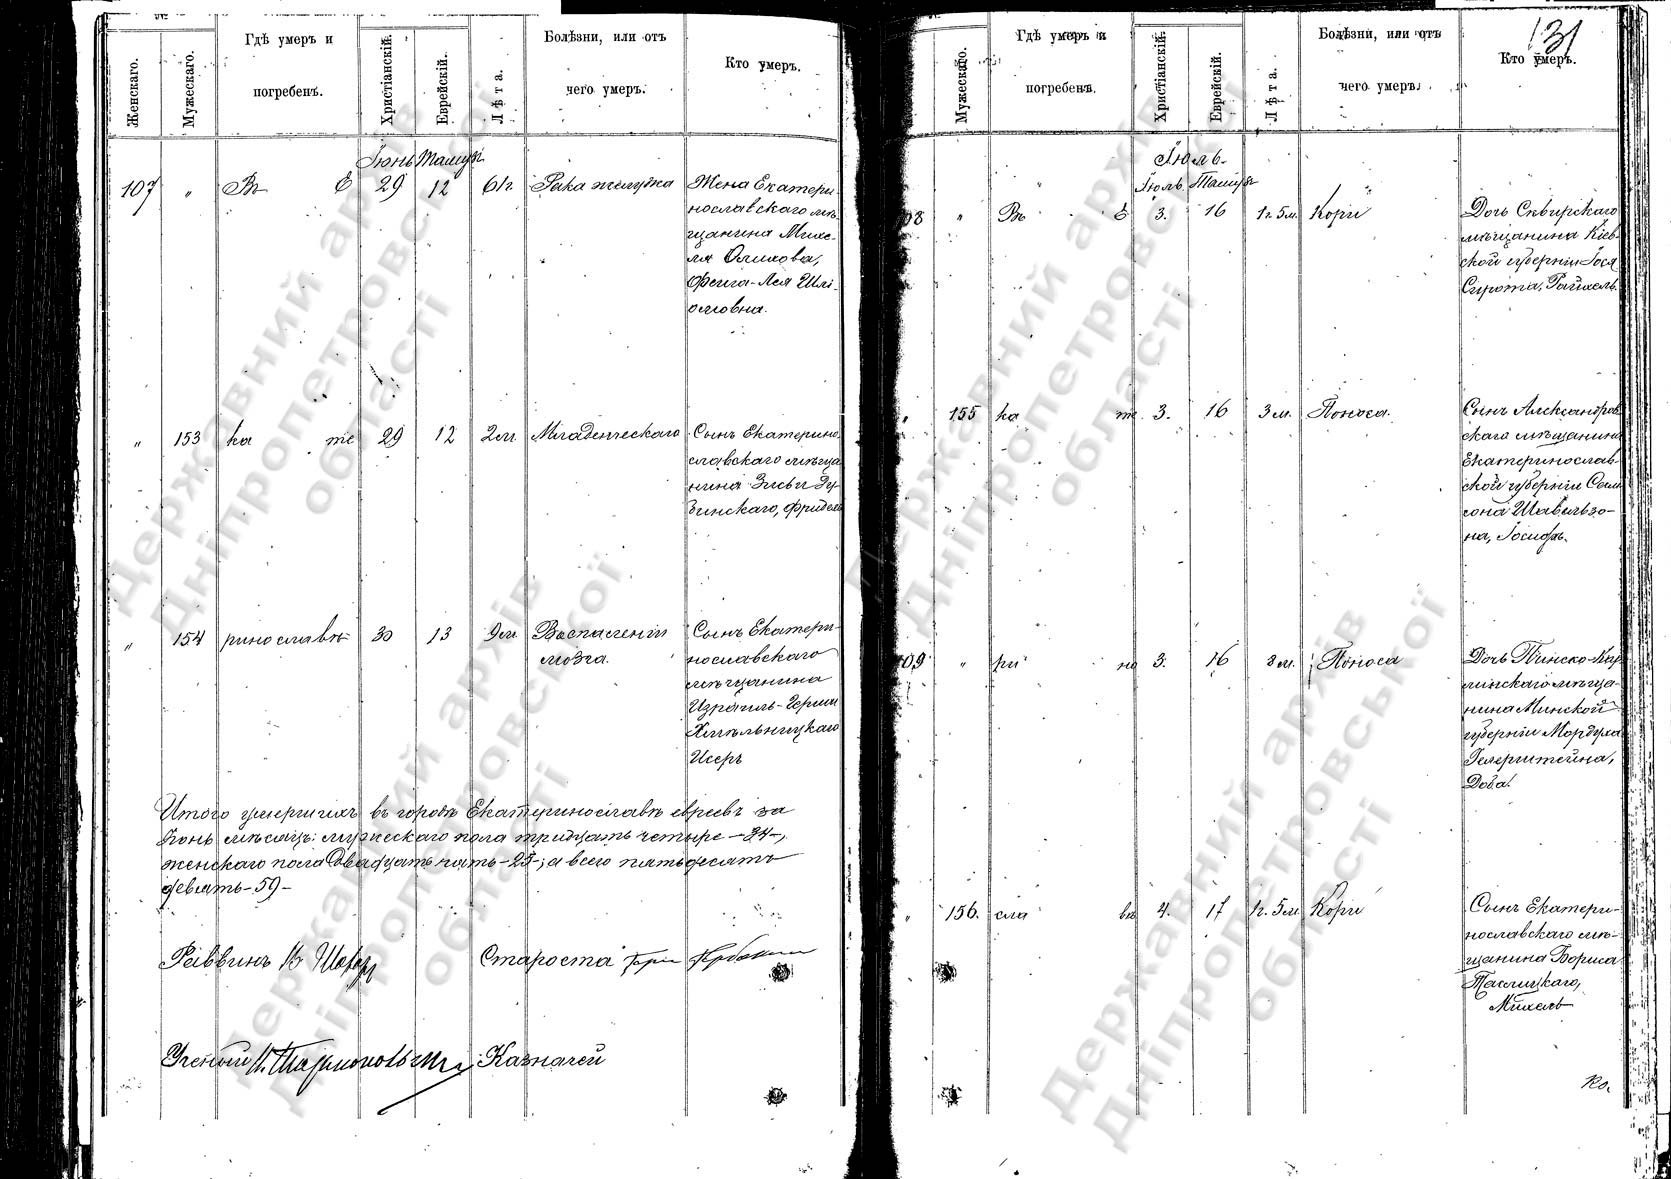 131
Женскаго.
Мужескаго.
Гдѣ умеръ и
погребенъ.
Христіанскій.
Еврейскій.
Лѣта.
Болѣзни, или отъ
чего умеръ.
Кто умеръ.
Іюнь Тамузъ
107 " Въ Е 29 12 61 г. Рака желудка
Жена Екатери-
нославскаго мѣ-
щанина Михе-
ля
Фейга-Лея Шлі-
омовна.
" 153 ка те 29 12 2 м. Младенческаго
Сынъ Екатерино
славскаго мѣща
нина
бинскаго, Фридель
" 154 ринославѣ 30 13 9 м. Воспаленіи
мозга.
Сынъ Екатери-
нославскаго
мѣщанина
Израиль-Герша
Хмѣльницкаго
Исеръ
Итого умершихъ въ городѣ Екатеринославѣ евреевъ за
Іюнь мѣсяцъ: мужескаго пола тридцать четыре -34-,
женскаго пола двадцать пять -25-; а всего пятьдесятъ
девять -59-
Раввинъ Староста
Ученый Казначей
Мужескаго.
Гдѣ умеръ и
погребенъ.
Христіанскій.
Еврейскій.
Лѣта.
Болѣзни, или отъ
чего умеръ.
Кто умеръ.
Іюль
Іюль Тамузъ
08 " Въ Е 3. 16 1 г. 5 м. Кори
Дочь Сквирскаго
мѣщанина Кіев-
ской губерніи Іося
Сирота, Райхель.
" 155 ка те 3. 16 3 м. Поноса.
Сынъ Александров
скаго мѣщанина
Екатеринослав-
ской губерніи Сам
сона Шавельзо-
на, Іосифъ.
09 " ри но 3. 16 8 м. Поноса
Дочь Пинско-Кар
линскаго мѣща-
нина Минской
губерніи Мордуха
Гелерштейна,
Доба.
" 156. сла вѣ 4. 17 1 г. 5 м. Кори
Сынъ Екатери-
нославскаго мѣ-
щанина Бориса
Таслицкаго,
Михель
Ко.
Державний архів
Дніпропетровської
області
Державний архів
Дніпропетровської
області
Державний архів
Дніпропетровської
області
Державний архів
Дніпропетровської
області